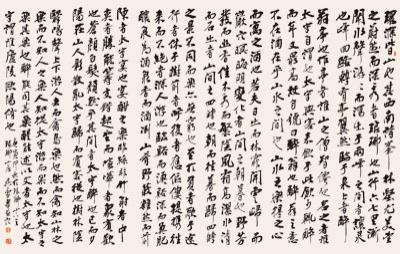 環滁皆山也其西南諸峰林壑尤美望
之蔚然而深秀者瑯琊也山行六七里漸
聞水聲潺潺而瀉出于兩峰之間者釀泉
也峰回路轉有亭翼然臨于泉上者醉
翁亭也作亭者誰山之僧智僊也名之者誰
太守自謂也太守與客來飲于此飲少輒醉
而年又最高故自號曰醉翁也醉翁之意
不在酒在乎山水之間也山水之樂得之心
而寓之酒也若夫日出而林霏開雲歸而
巖穴暝晦明變化者山間之朝暮也野芳
發而幽香佳木秀而繁陰風霜高潔水清
而石出者山間之四時也朝而往暮而歸四時
之景不同而樂亦無窮也至于負者歌于途
行者休于樹前者呼後者應傴僂提攜往
來而不絕者滁人遊也臨溪而漁溪深而魚肥
釀泉為酒泉香而酒洌山肴野蔌雜然而前
陳者太守宴也宴酣之樂非絲非竹射者中
弈者勝觥籌交錯起坐而喧嘩者眾賓歡
也蒼顏白髮頹然乎其間者太守醉也已而夕
陽在山人影散亂太守歸而賓客從也樹林陰
翳鳴聲上下遊人去而禽鳥樂也然而禽鳥知山林之
樂而不知人之樂人知從太守遊而樂而不知太守之
樂其樂也醉能同其樂醒能述以文者太守也太
守謂誰廬陵歐陽修也